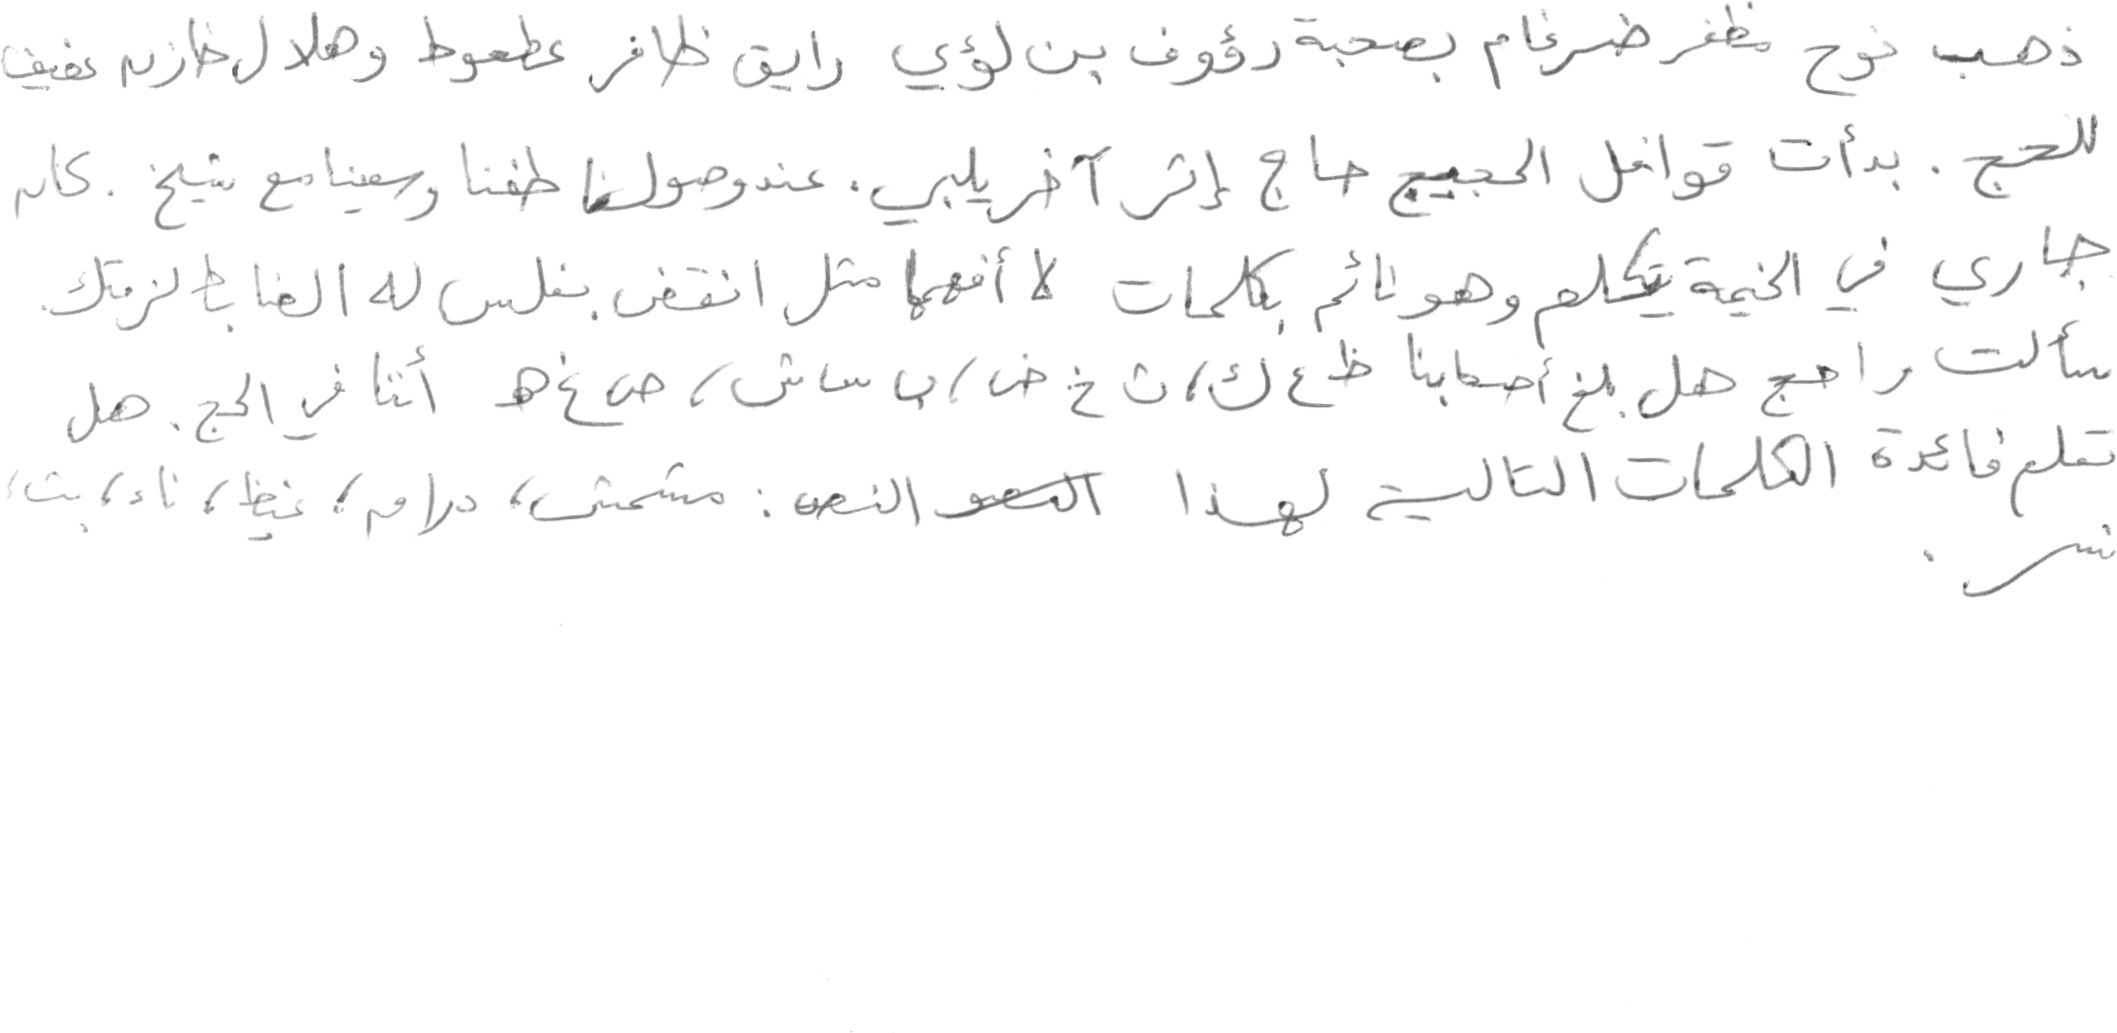 ذهب نوح مظفر ضرغام بصحبة رؤوف بن لؤي رايق ظافر عطعوط وهلال خازن عفيف
للحج . بدأت قوافل الحجيج حاج إثر آخر يلبي . عند وصولنا طفنا وسعينا مع شيخ . كان
جاري في الخيمة يتكلم وهو نائم بكلمات لا أفهمها مثل انقض بغلس له الضابط لزمتك .
سألت راجح هل بلغ أصحابنا ظ ع ك، ث خ ض، ب سا ش، ص غ هـ أننا في الحج . هل
تعلم فائدة الكلمات التالية لهذا النص : مشمش، درام، غيظ، ناء، بث،
نسر .